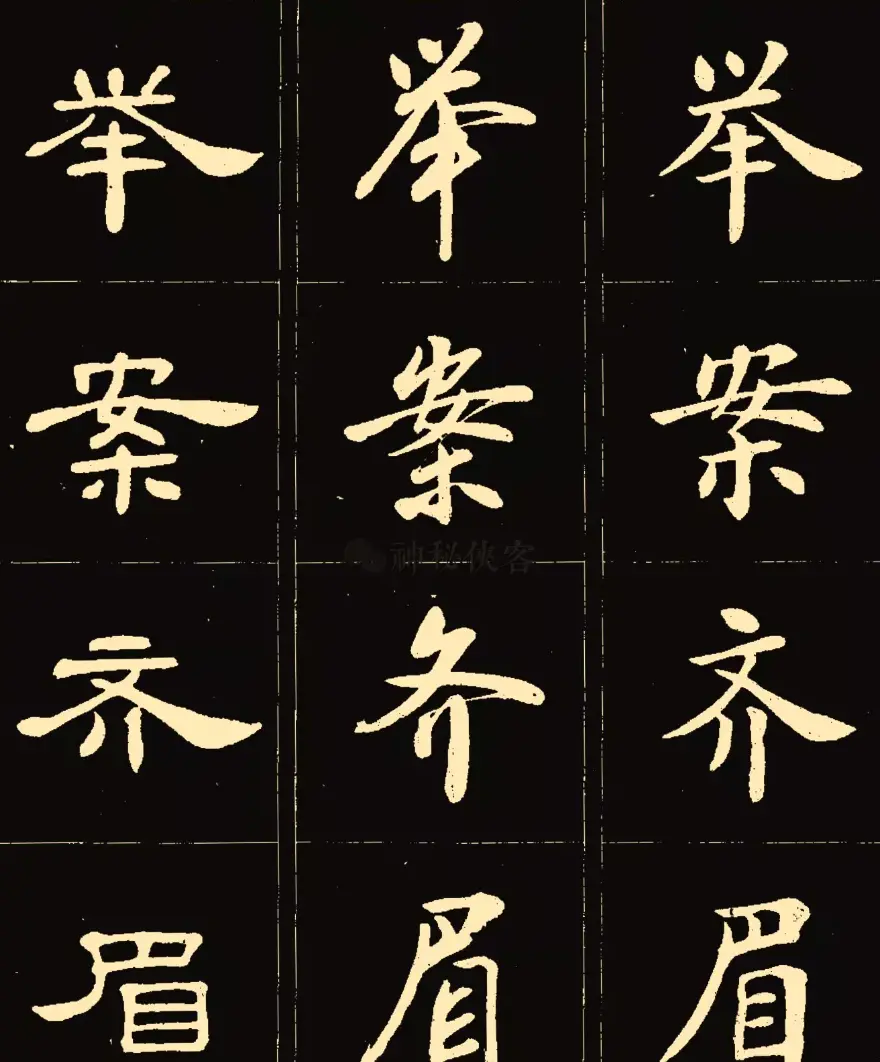 举 举 举
案 案 案
神秘侠客
齐 齐 齐
眉 眉 眉